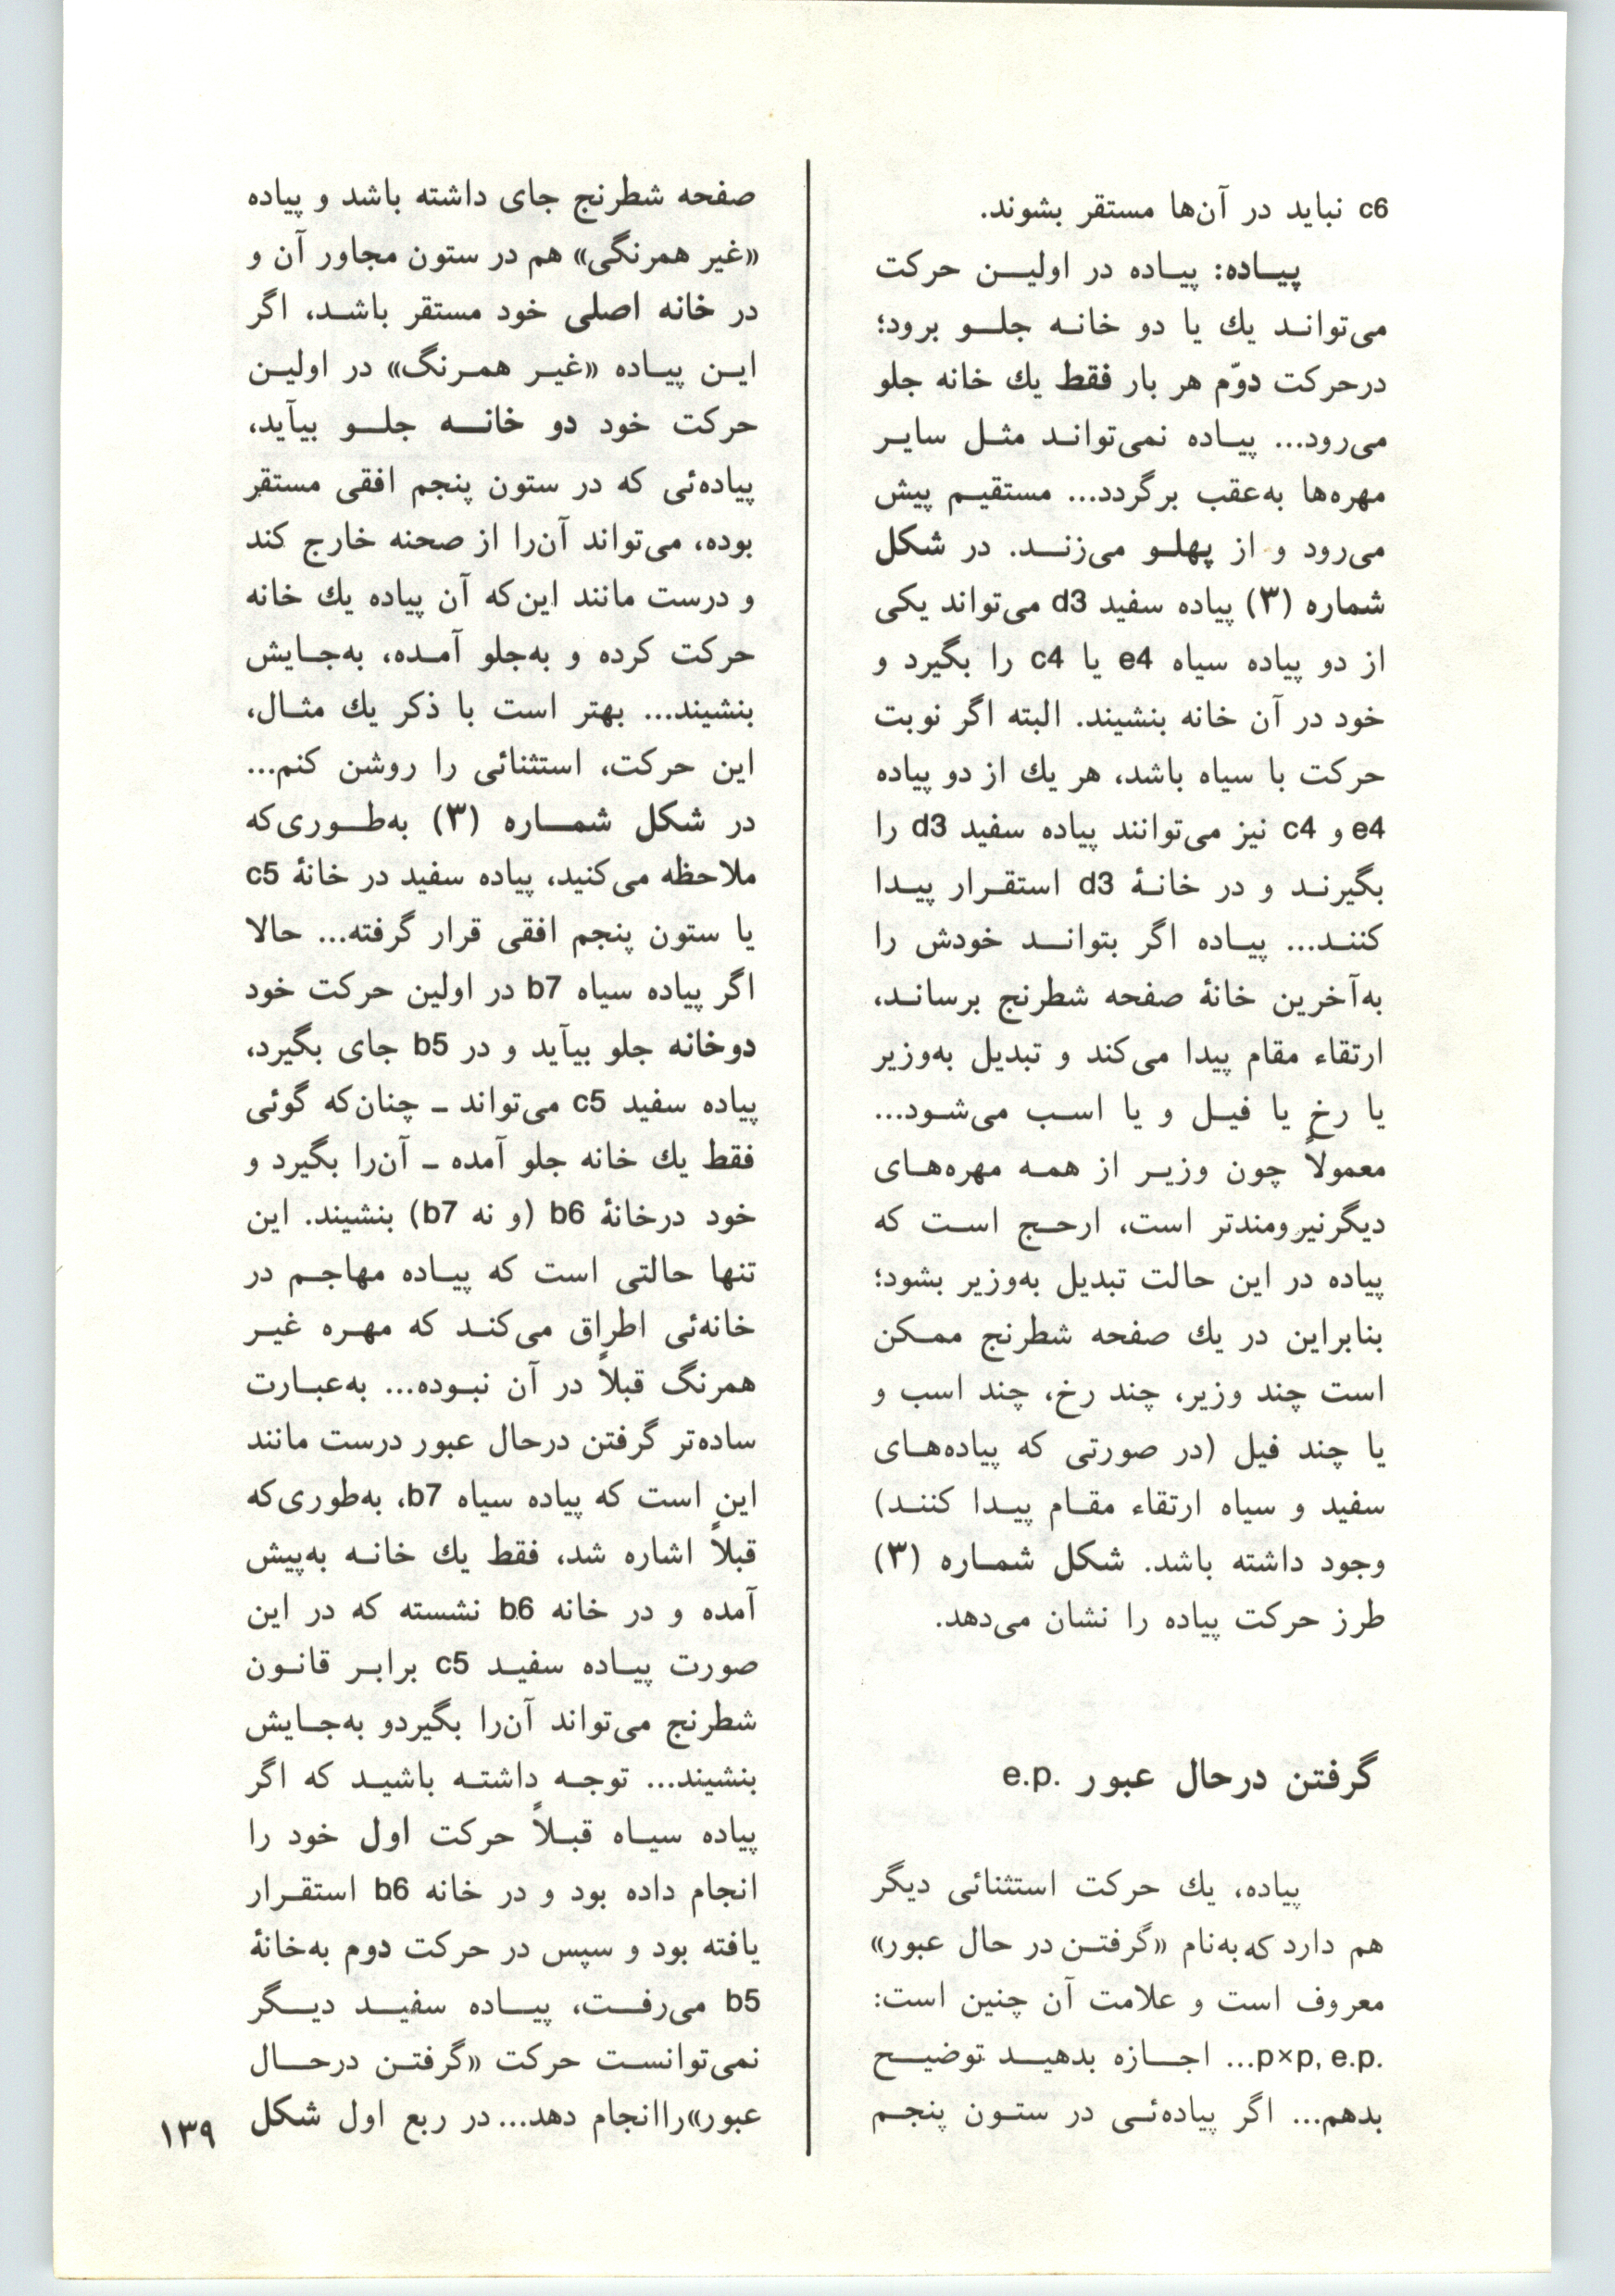 c6 نباید در آن‌ها مستقر بشوند.
پیـاده: پیـاده در اولیـن حرکت
می‌توانـد یك یا دو خانـه جلـو برود؛
درحرکت دوّم هر بار فقط یك خانه جلو
می‌رود... پیـاده نمی‌توانـد مثـل سایـر
مهره‌ها به‌عقب برگردد... مستقیـم پیش
می‌رود و از پهلـو می‌زنـد. در شکل
شماره (۳) پیاده سفید d3 می‌تواند یکی
از دو پیاده سیاه e4 یا c4 را بگیرد و
خود در آن خانه بنشیند. البته اگر نوبت
حرکت با سیاه باشد، هر یك از دو پیاده
e4 و c4 نیز می‌توانند پیاده سفید d3 را
بگیرنـد و در خانـهٔ d3 استقـرار پیـدا
کننـد... پیـاده اگر بتوانـد خودش را
به‌آخرین خانهٔ صفحه شطرنج برسانـد،
ارتقاء مقام پیدا می‌کند و تبدیل به‌وزیر
یا رخ یا فیـل و یا اسـب می‌شـود...
معمولاً چون وزیـر از همـه مهره‌هـای
دیگرنیرومندتر است، ارحـج اسـت که
پیاده در این حالت تبدیل به‌وزیر بشود؛
بنابراین در یك صفحه شطرنج ممـکن
است چند وزیر، چند رخ، چند اسب و
یا چند فیل (در صورتی که پیاده‌هـای
سفید و سیاه ارتقاء مقـام پیـدا کننـد)
وجود داشته باشد. شکل شمـاره (۳)
طرز حرکت پیاده را نشان می‌دهد.
گرفتن درحال عبور e.p.
پیاده، یك حرکت استثنائی دیگر
هم دارد که به‌نام «گرفتـن در حال عبور»
معروف است و علامت آن چنین است:
p×p, e.p.... اجـازه بدهیـد توضیـح
بدهم... اگر پیاده‌ئـی در ستـون پنجـم
صفحه شطرنج جای داشته باشد و پیاده
«غیر همرنگی» هم در ستون مجاور آن و
در خانه اصلی خود مستقر باشـد، اگر
ایـن پیـاده «غیـر همـرنگ» در اولیـن
حرکت خود دو خانـه جلـو بیآید،
پیاده‌ئی که در ستون پنجم افقی مستقر
بوده، می‌تواند آن‌را از صحنه خارج کند
و درست مانند این‌که آن پیاده یك خانه
حرکت کرده و به‌جلو آمـده، به‌جـایش
بنشیند... بهتر است با ذکر یك مثـال،
این حرکت، استثنائی را روشن کنم...
در شکل شمـاره (۳) به‌طـوری‌که
ملاحظه می‌کنید، پیاده سفید در خانهٔ c5
یا ستون پنجم افقی قرار گرفته... حالا
اگر پیاده سیاه b7 در اولین حرکت خود
دوخانه جلو بیآید و در b5 جای بگیرد،
پیاده سفید c5 می‌تواند ـ چنان‌که گوئی
فقط یك خانه جلو آمده ـ آن‌را بگیرد و
خود درخانهٔ b6 (و نه b7) بنشیند. این
تنها حالتی است که پیـاده مهاجـم در
خانه‌ئی اطراق می‌کنـد که مهـره غیـر
همرنگ قبلاً در آن نبـوده... به‌عبـارت
ساده‌تر گرفتن درحال عبور درست مانند
این است که پیاده سیاه b7، به‌طوری‌که
قبلاً اشاره شد، فقط یك خانـه به‌پیش
آمده و در خانه b6 نشسته که در این
صورت پیـاده سفیـد c5 برابـر قانـون
شطرنج می‌تواند آن‌را بگیردو به‌جـایش
بنشیند... توجـه داشتـه باشیـد که اگر
پیاده سیـاه قبـلاً حرکت اول خود را
انجام داده بود و در خانه b6 استقـرار
یافته بود و سپس در حرکت دوم به‌خانهٔ
b5 می‌رفـت، پیـاده سفیـد دیـگر
نمی‌توانست حرکت «گرفتـن درحـال
عبور»راانجام دهد... در ربع اول شکل
۱۳۹